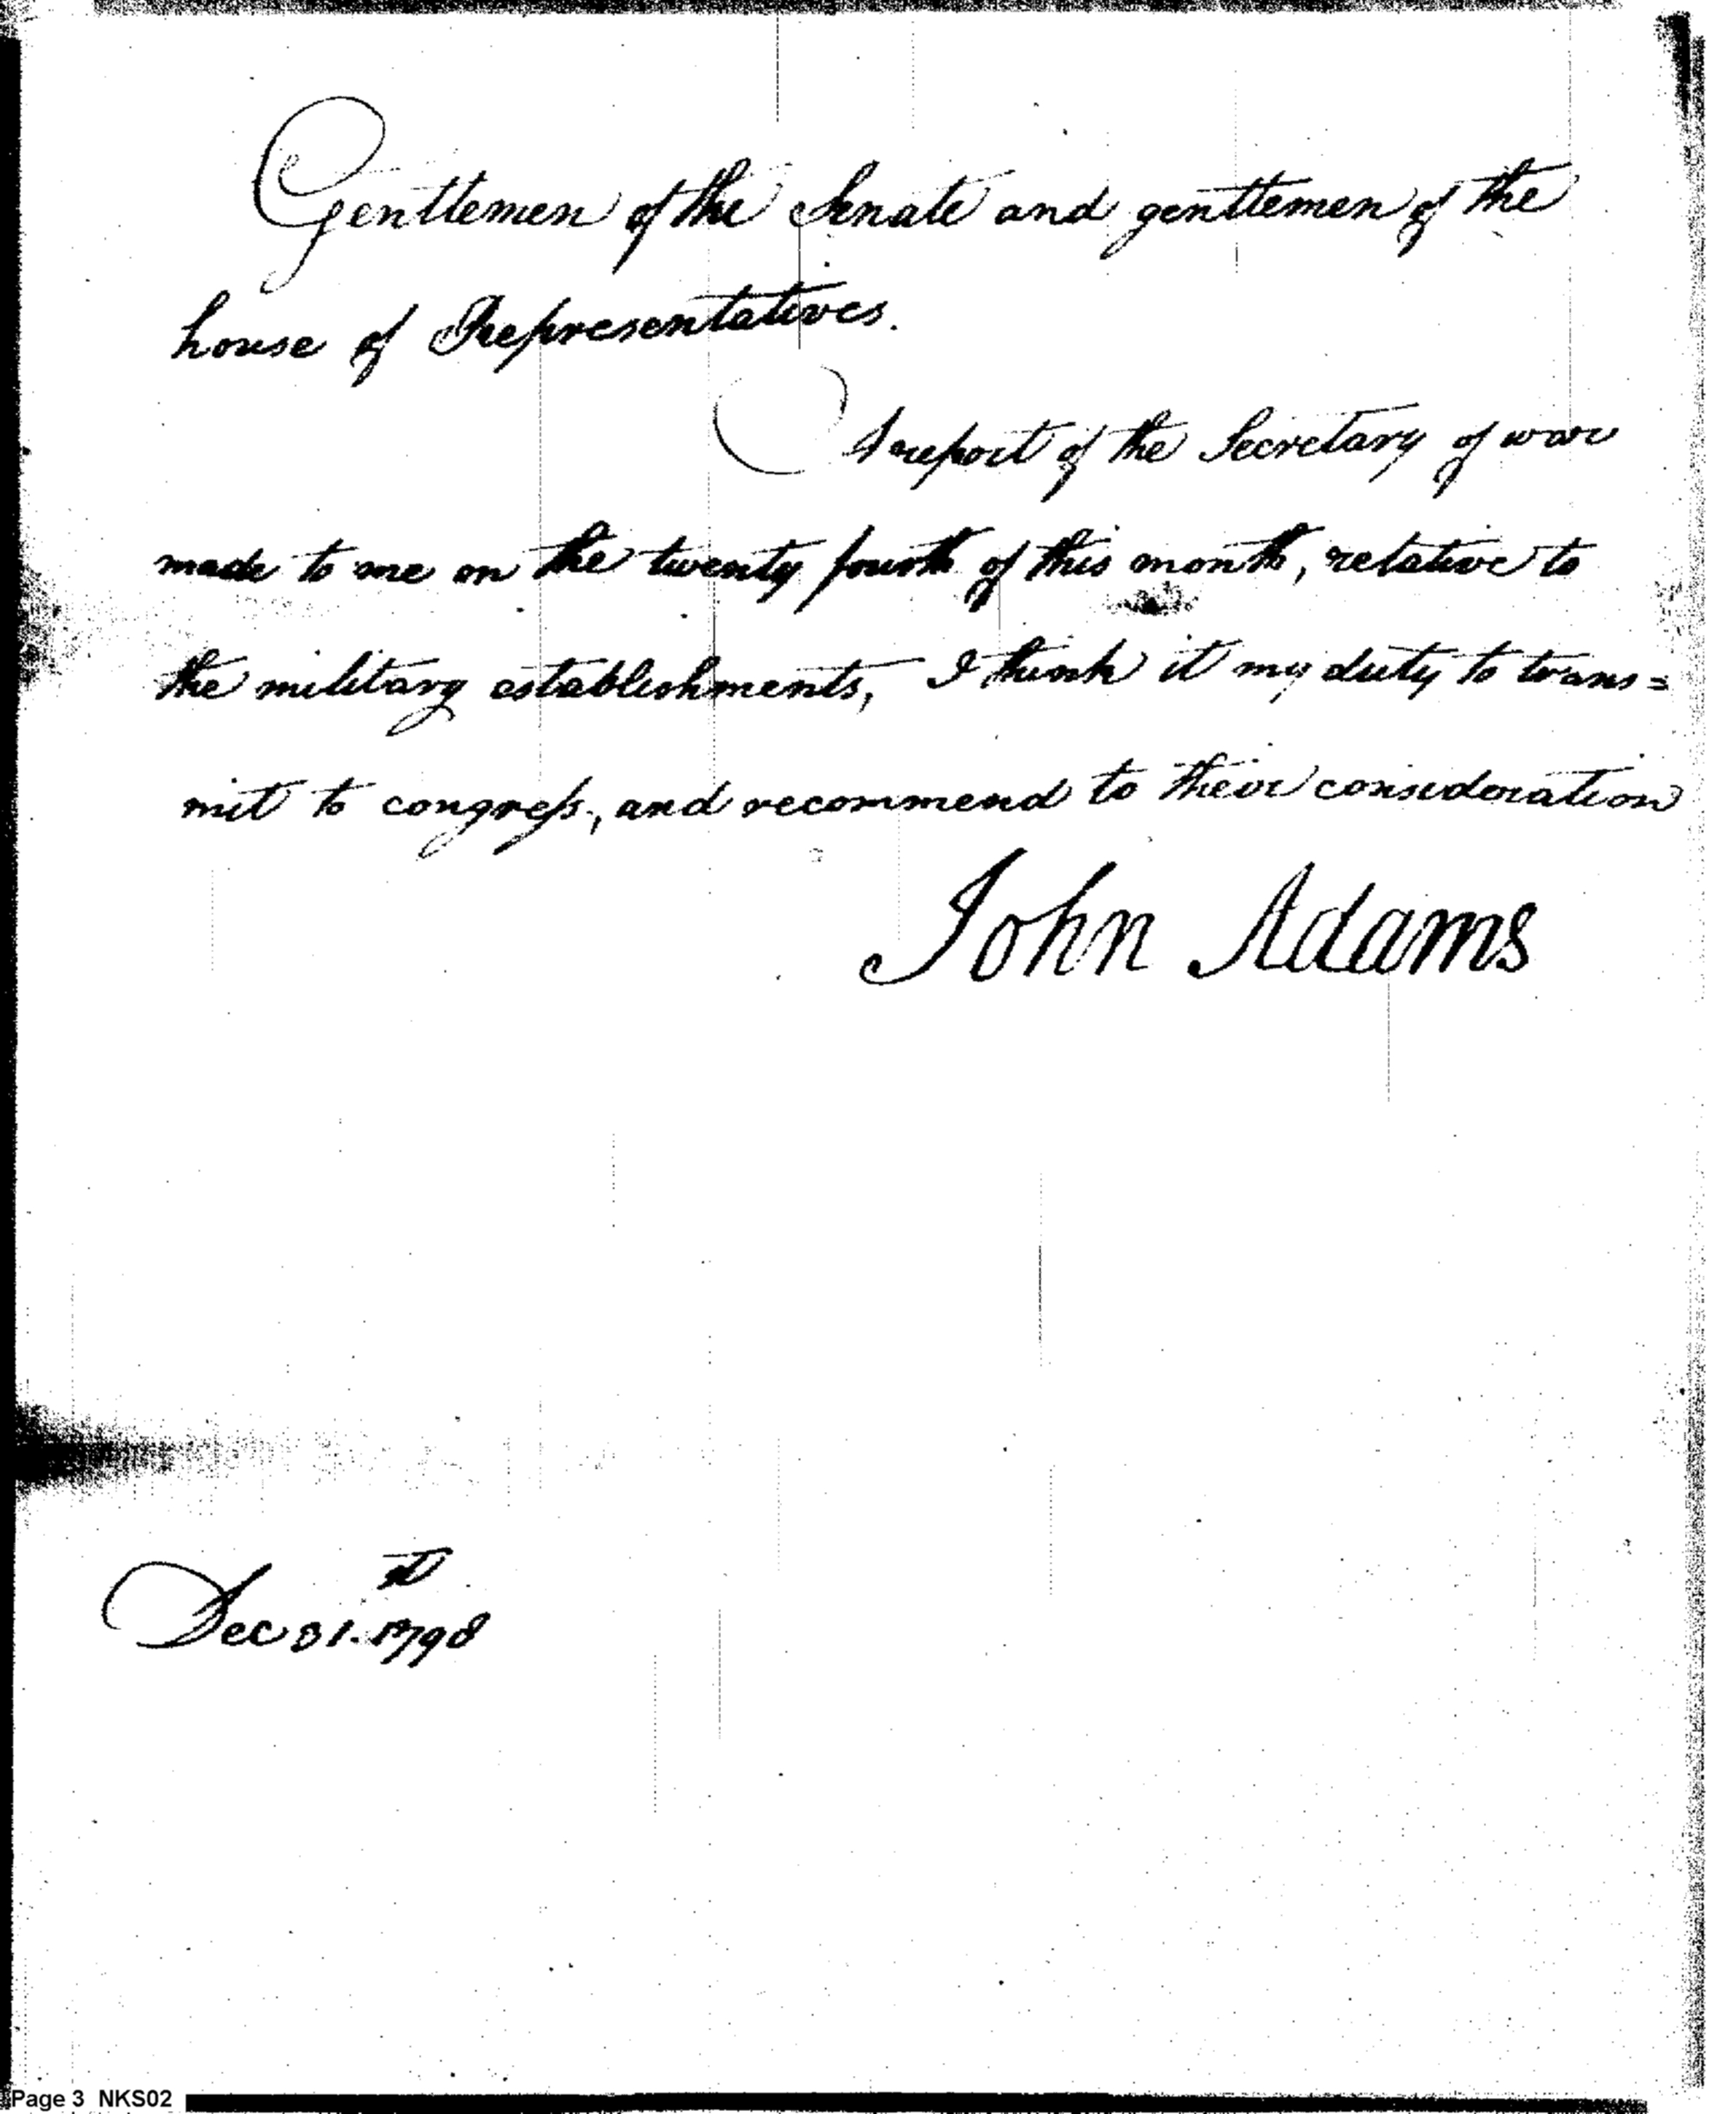 Gentlemen of the Senate and gentlemen of the
house of Representatives.
A report of the Secretary of war
made to me on the twenty fourth of this month, relative to
the military establishments, I think it my duty to trans=
mit to congress, and recommend to their consideration
John Adams
st
Dec 31. 1798
Page 3 NKS02